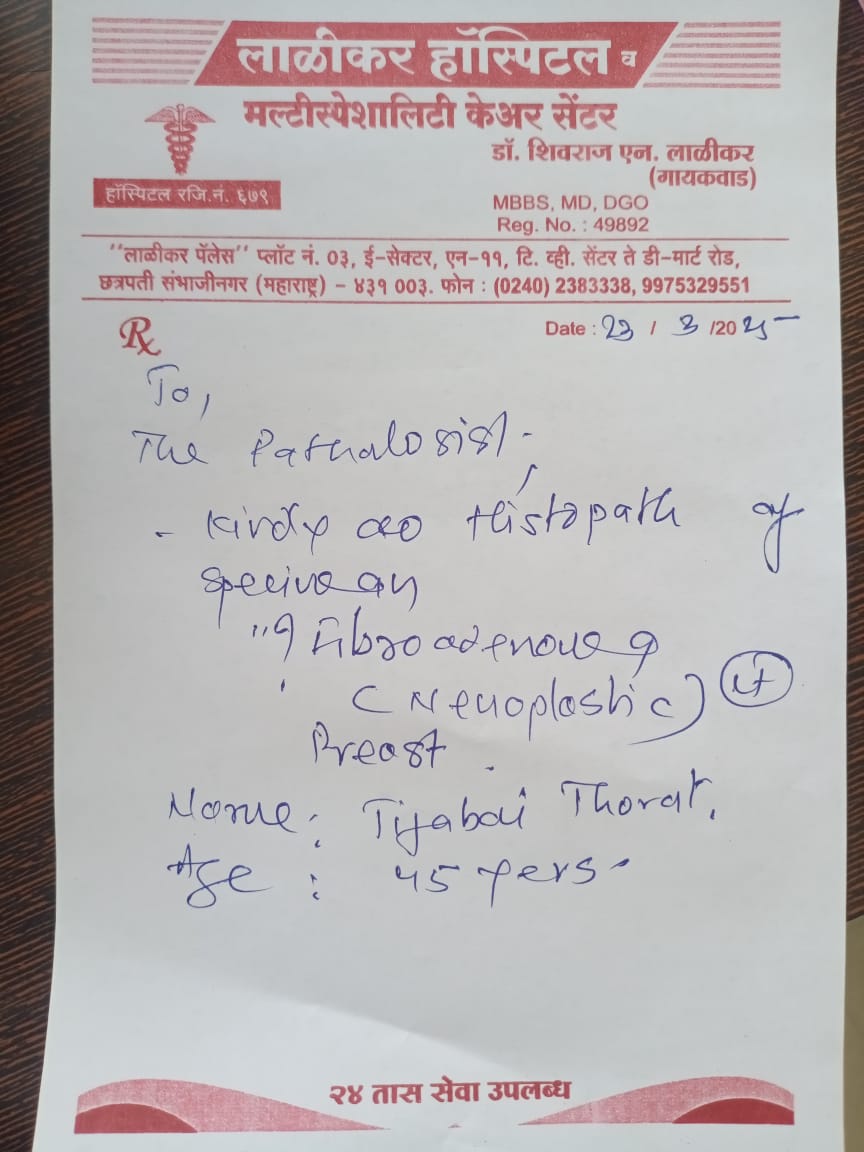 लाळीकर हॉस्पिटल व
मल्टीस्पेशालिटी केअर सेंटर
डॉ. शिवराज एन. लाळीकर
(गायकवाड)
हॉस्पिटल रजि.नं. ६७९
MBBS, MD, DGO
Reg. No. : 49892
"लाळीकर पॅलेस" प्लॉट नं. ०३, ई-सेक्टर, एन-११, टि. व्ही. सेंटर ते डी-मार्ट रोड,
छत्रपती संभाजीनगर (महाराष्ट्र) - ४३१ ००३. फोन : (0240) 2383338, 9975329551
Rx
Date : 23 / 3 /2025
To,
The Pathalogist
- Kindly do Histopath of
specimen
Fibroadenoma
(Neuoplastic) Lt
Breast.
Name : Tijabai Thorat.
Age : 45 yers
२४ तास सेवा उपलब्ध